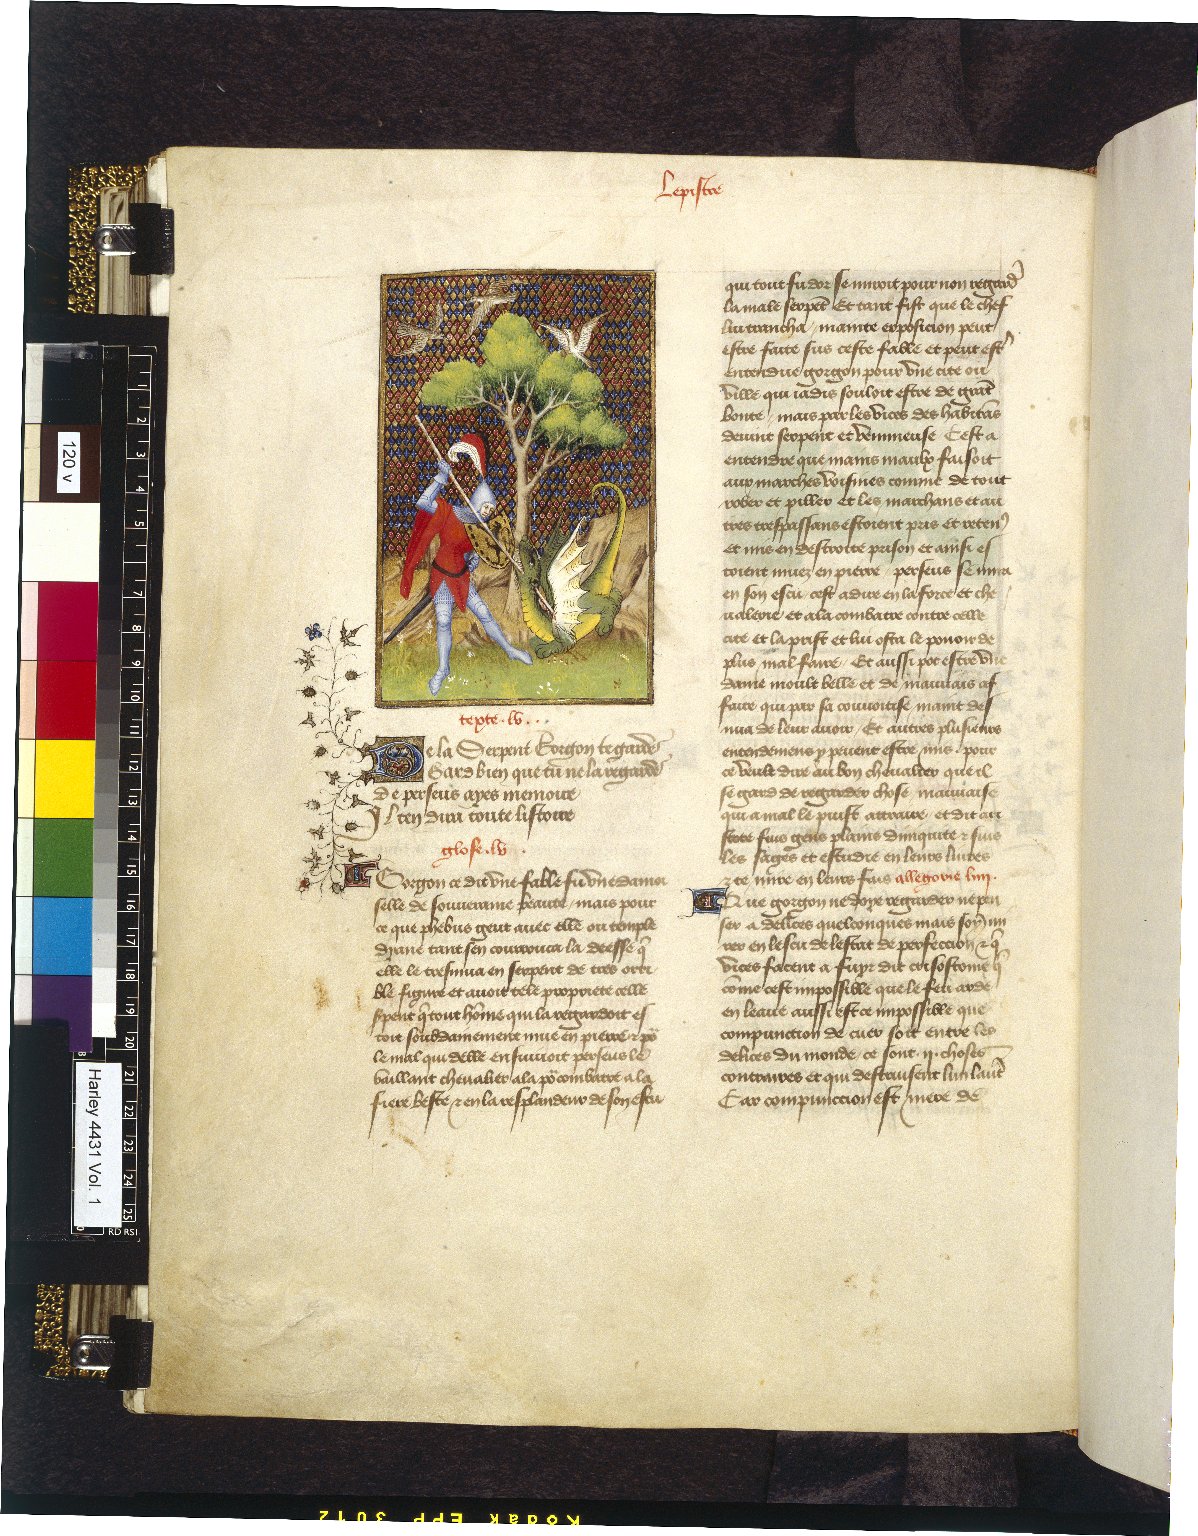 Lepistre
texte. lv...
De la Serpent Gorgon te garde
Gard bien que tu ne la regarde
De perseus ayes memoire
Il ten dira toute listoire
glose. lv.
Gorgon ce dit vne fable fu vne damoi
selle de souueraine beaute / mais pour
ce que phebus geut auec elle ou temple
dyane tant sen courrouca la deesse q̄
elle le tresmua en serpent de tres orri
ble figure et auoit tele propriete celle
s̄pent q̄ tout hōme qui la regardoit es
toit soubdainement mue en pierre ⁊ po͛
le mal qui delle ensuiuoit perseus le
vaillant cheualier ala po͛ combatre a la
fiere beste ⁊ en la resplandeur de son escu
qui tout fu dor se miroit pour non regard͛
la male serpēt Et tant fist que le chef
lui trancha / mainte exposicion peut
estre faite sus ceste fable et peut est͛
entendue gorgon pour vne cite ou
ville qui iadis souloit estre de grāt
bonte / mais par les vices des habitās
deuint serpent et venimeuse Cest a
entendre que mains maulx faisoit
aux marches voisines comme de tout
rober et piller et les marchans et au
tres trespassans estoient pris et reten᾽
et mis en destroite prison et ainsi es
toient muez en pierre / perseus se mira
en son escu cest adire en la force et che
ualerie et ala combatre contre celle
cite et la prist et lui osta le pouoir de
plus mal faire / Et aussi pot estre vne
dame moult belle et de mauuais af
faire qui par sa couuoitise maint des
nua de leur auoir / Et autres plusieurs
entendemens y peuent estre mis / pour
ce veult dire au bon cheualier que il
se gard de regarder chose mauuaise
qui a mal le puist attraire / et dit ari
stote fuis gens plains diniquite ⁊ suis
les sages et estudie en leurs liures
⁊ te mire en leurs fais allegorie liiij.
Que gorgon ne doye regarder ne pen
ser a delices quelconques mais soy mi
rer en lescu de lestat de perfeccion ⁊ q̄
vices facent a fuyr dit crisostome q̄
cōme cest impossible que le feu arde
en leaue aussi est ce impossible que
compunction de cuer soit entre les
delices du monde / ce sont .ij. choses
contraires et qui destruisent lun lautr̄
Car compunction est mere de
120 v
Harley 4431 Vol. 1
Kodak EPP 3012